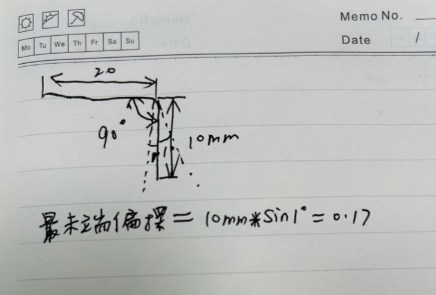 Memo No.
Mo Tu We Th Fr Sa Su
Date /
20
90°
10mm
最末端偏摆 = 10mm*Sin1° = 0.17